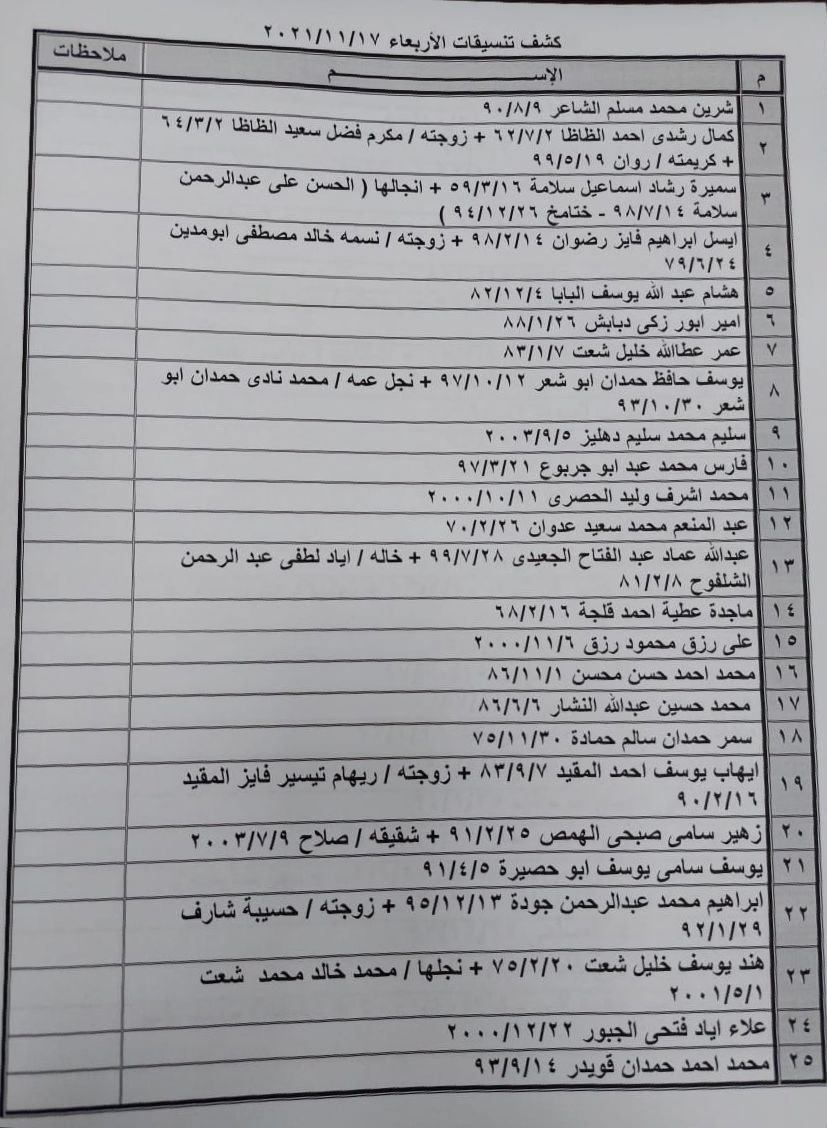 كشف تنسيقات الأربعاء ٢٠٢١/١١/١٧
م الإســـــــــم ملاحظات
١ شرين محمد مسلم الشاعر ٩٠/٨/٩
٢ كمال رشدى احمد الظاظا ٦٢/٧/٢ + زوجته / مكرم فضل سعيد الظاظا ٦٤/٣/٢
+ كريمته / روان ٩٩/٥/١٩
٣ سميرة رشاد اسماعيل سلامة ٥٩/٣/١٦ + انجالها ( الحسن على عبدالرحمن
سلامة ٩٨/٧/١٤ - ختامخ ٩٤/١٢/٢٦ )
٤ ايسل ابراهيم فايز رضوان ٩٨/٢/١٤ + زوجته / نسمه خالد مصطفى ابومدين
٧٩/٦/٢٤
٥ هشام عبد الله يوسف البابا ٨٢/١٢/٤
٦ امير ابور زكى دبابش ٨٨/١/٢٦
٧ عمر عطاالله خليل شعت ٨٣/١/٧
٨ يوسف حافظ حمدان ابو شعر ٩٧/١٠/١٢ + نجل عمه / محمد نادى حمدان ابو
شعر ٩٣/١٠/٣٠
٩ سليم محمد سليم دهليز ٢٠٠٣/٩/٥
١٠ فارس محمد عبد ابو جربوع ٩٧/٣/٢١
١١ محمد اشرف وليد الحصرى ٢٠٠٠/١٠/١١
١٢ عبد المنعم محمد سعيد عدوان ٧٠/٢/٢٦
١٣ عبدالله عماد عبد الفتاح الجعيدى ٩٩/٧/٢٨ + خاله / اياد لطفى عبد الرحمن
الشلفوح ٨١/٢/٨
١٤ ماجدة عطية احمد قلجة ٦٨/٢/١٦
١٥ على رزق محمود رزق ٢٠٠٠/١١/٦
١٦ محمد احمد حسن محسن ٨٦/١١/١
١٧ محمد حسين عبدالله النشار ٨٦/٦/٦
١٨ سمر حمدان سالم حمادة ٧٥/١١/٣٠
١٩ ايهاب يوسف احمد المقيد ٨٣/٩/٧ + زوجته / ريهام تيسير فايز المقيد
٩٠/٢/١٦
٢٠ زهير سامى صبحى الهمص ٩١/٢/٢٥ + شقيقه / صلاح ٢٠٠٣/٧/٩
٢١ يوسف سامى يوسف ابو حصيرة ٩١/٤/٥
٢٢ ابراهيم محمد عبدالرحمن جودة ٩٥/١٢/١٣ + زوجته / حسيبة شارف
٩٢/١/٢٩
٢٣ هند يوسف خليل شعت ٧٥/٢/٢٠ + نجلها / محمد خالد محمد شعت
٢٠٠١/٥/١
٢٤ علاء اياد فتحى الجبور ٢٠٠٠/١٢/٢٢
٢٥ محمد احمد حمدان قويدر ٩٣/٩/١٤